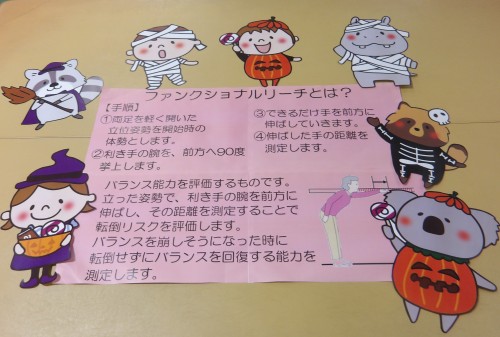 ファンクショナルリーチとは?
【手順】
①両足を軽く開いた
立位姿勢を開始時の
体勢とします。
②利き手の腕を、前方へ90度
挙上します。
③できるだけ手を前方に
伸ばしていきます。
④伸ばした手の距離を
測定します。
バランス能力を評価するものです。
立った姿勢で、利き手の腕を前方に
伸ばし、その距離を測定することで
転倒リスクを評価します。
バランスを崩しそうになった時に
転倒せずにバランスを回復する能力を
測定します。